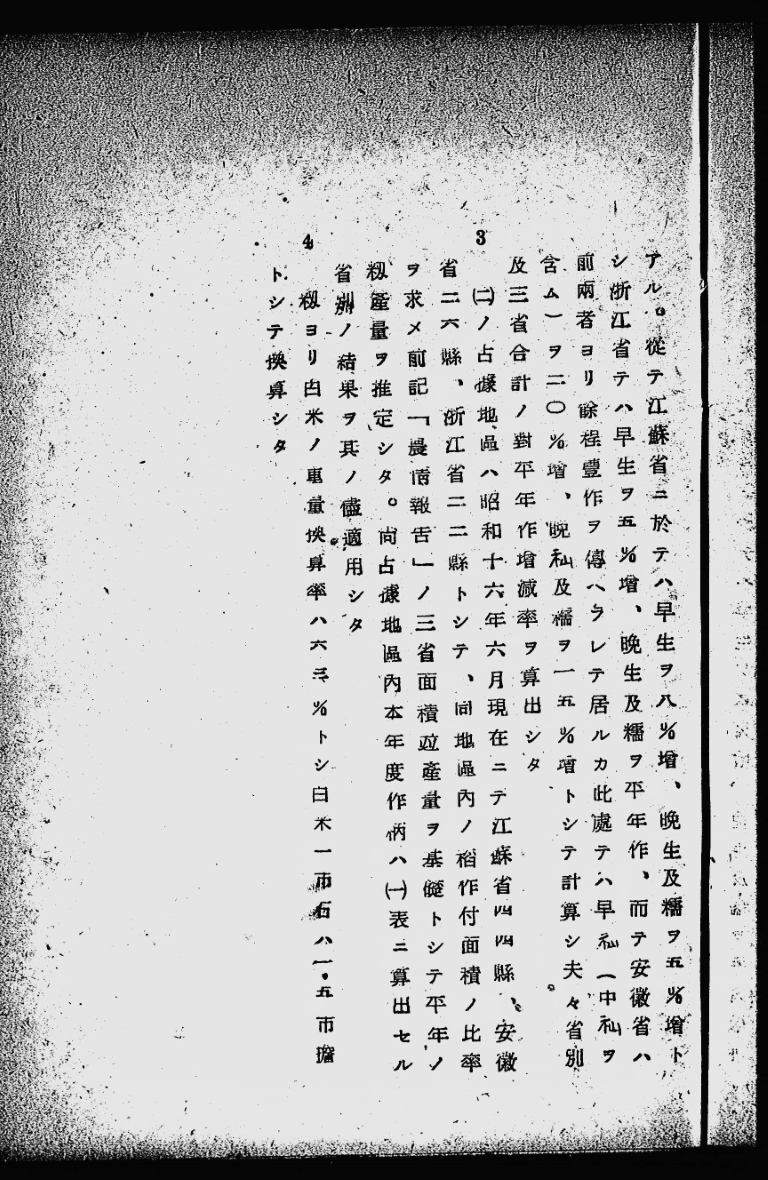 アル。從テ江蘇省ニ於テハ早生ヲ八%增、晚生及糯ヲ五%增ト
シ浙江省テハ早生ヲ五%增、晚生及糯ヲ平年作、而テ安徽省ハ
前兩者ヨリ餘程豐作ヲ傳ヘラレテ居ルカ此處テハ早秈(中秈ヲ
含ム)ヲ二〇%增、晚秈及糯ヲ一五%增トシテ計算シ夫々省別
及三省合計ノ對平年作增減率ヲ算出シタ。
3 (二)ノ占據地區ハ昭和十六年六月現在ニテ江蘇省四四縣、安徽
省二六縣、浙江省二二縣トシテ、同地區內ノ稻作付面積ノ比率
ヲ求メ前記「農情報吿」ノ三省面積竝產量ヲ基礎トシテ平年ノ
籾產量ヲ推定シタ。尙占據地區內本年度作柄ハ(一)表ニ算出セル
省別ノ結果ヲ其ノ儘適用シタ。
4 籾ヨリ白米ノ重量換算率ハ六三%トシ白米一市石ハ一・五市擔
トシテ換算シタ